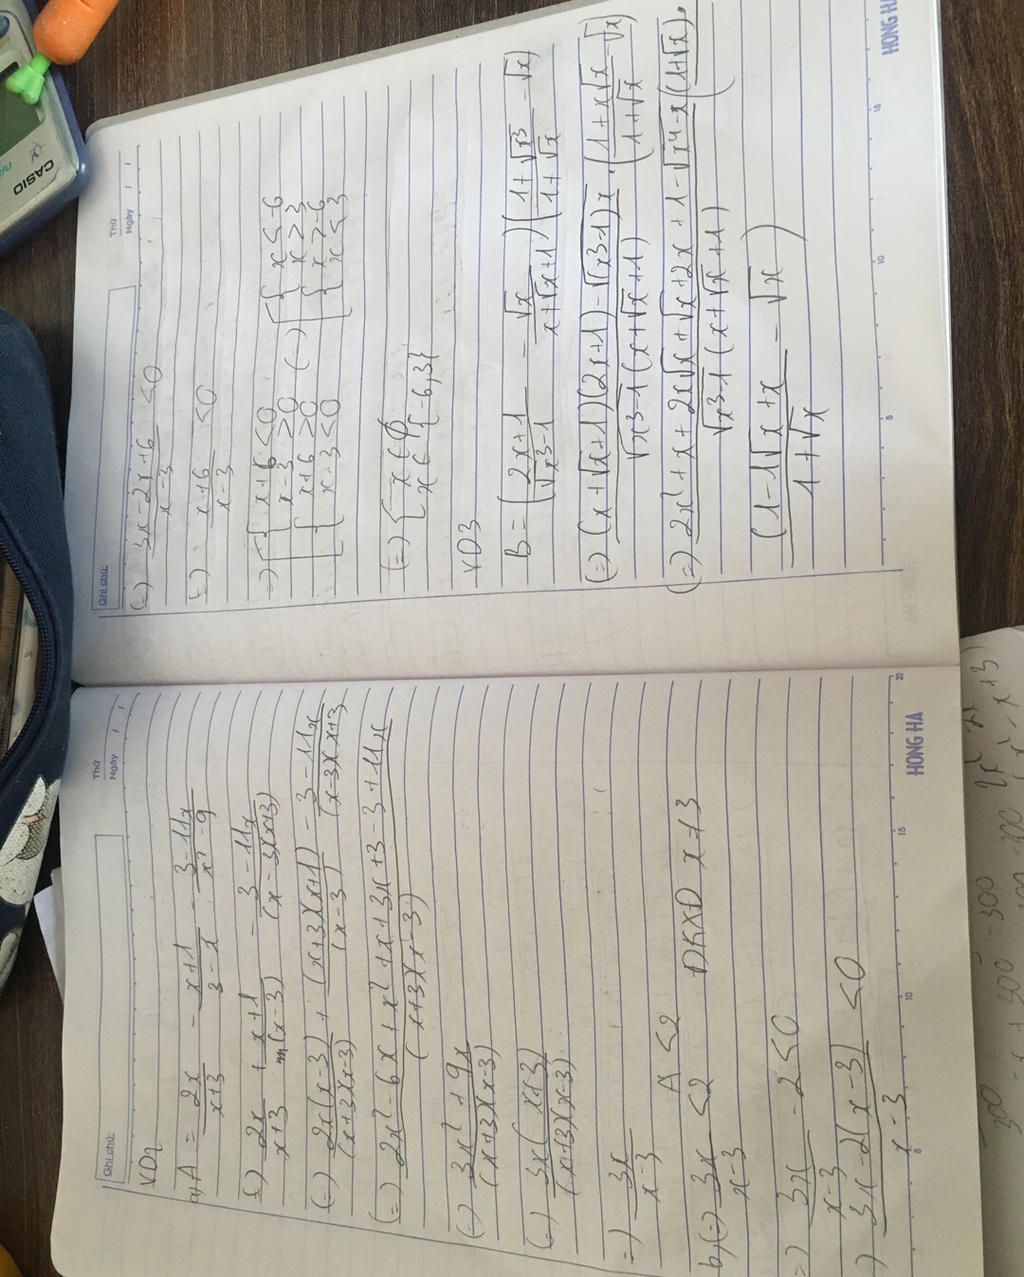 Ghi chú:
Thứ
Ngày
VD1
a, A = 2x/x+3 - x+1/3-x - 3-11x/x²-9
(=) 2x/x+3 + x+1/(x-3) - 3-11x/(x-3)(x+3)
(=) 2x(x-3)/(x+3)(x-3) + (x+3)(x+1)/(x-3) - 3-11x/(x-3)(x+3)
(=) 2x²-6x+x²+x+3x+3-3+11x/(x+3)(x-3)
(=) 3x²+9x/(x+3)(x-3)
(=) 3x(x+3)/(x+3)(x-3)
=) 3x/x-3
A <2
b, (=) 3x/x-3 <2 ĐKXĐ x≠3
=) 3x/x-3 -2<0
=) 3x-2(x-3)/x-3 <0
HONG HA
5
10
15
20
Ghi chú:
Thứ
Ngày
(=) 3x-2x+6/x-3 <0
=) x+6/x-3 <0
=) [ { x+6<0 x-3>0 { x+6>0 x-3<0 (=) [ { x<-6 x>3 { x>-6 x<3
(=) { x∈∅ x∈{-6,3}
VD3
B = (2x+1/√x³-1 - √x/x+√x+1)(1+√x³/1+√x - √x)
(=) (x+√x+1)(2x+1)-√(x³-1)x/√x³-1(x+√x+1) . (1+x√x/1+√x - √x)
(=) 2x²+x+2x√x+√x+2x+1-√x⁴-x/√x³-1(x+√x+1) (1+√x).
(1-1√x+x/1+√x - √x)
5
10
15
HONG HA
CASIO
300